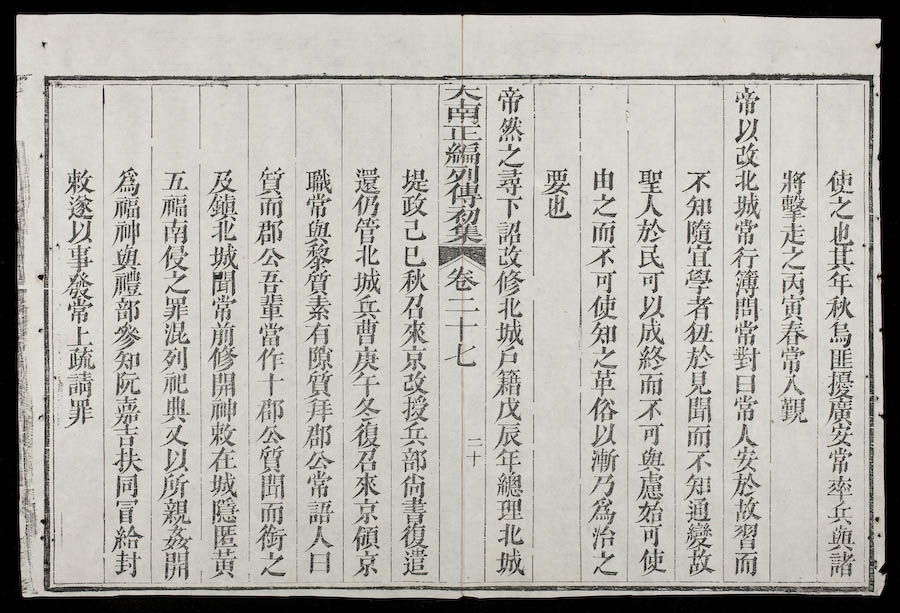 使之也其年秋烏匪擾廣安常率兵與諸
將擊走之丙寅春常入覲
帝以改北城常行簿問常對曰常人安於故習而
不知隨宜學者狃於見聞而不知通變故
聖人於民可以成終而不可與慮始可使
由之而不可使知之革俗以漸乃為治之
要也
帝然之尋下詔改修北城戶籍戊辰年總理北城
大南正編列傳初集 卷二十七 二十
堤政己巳秋召來京改授兵部尚書復遣
還仍管北城兵曹庚午冬復召來京領京
職常與黎質素有隙質拜郡公常語人曰
質而郡公吾輩當作十郡公質聞而銜之
及鎮北城聞常前修開神敕在城隱匿黃
五福南侵之罪混列祀典又以所親姦開
為福神與禮部參知阮嘉吉扶同冒給封
敕遂以事發常上疏請罪